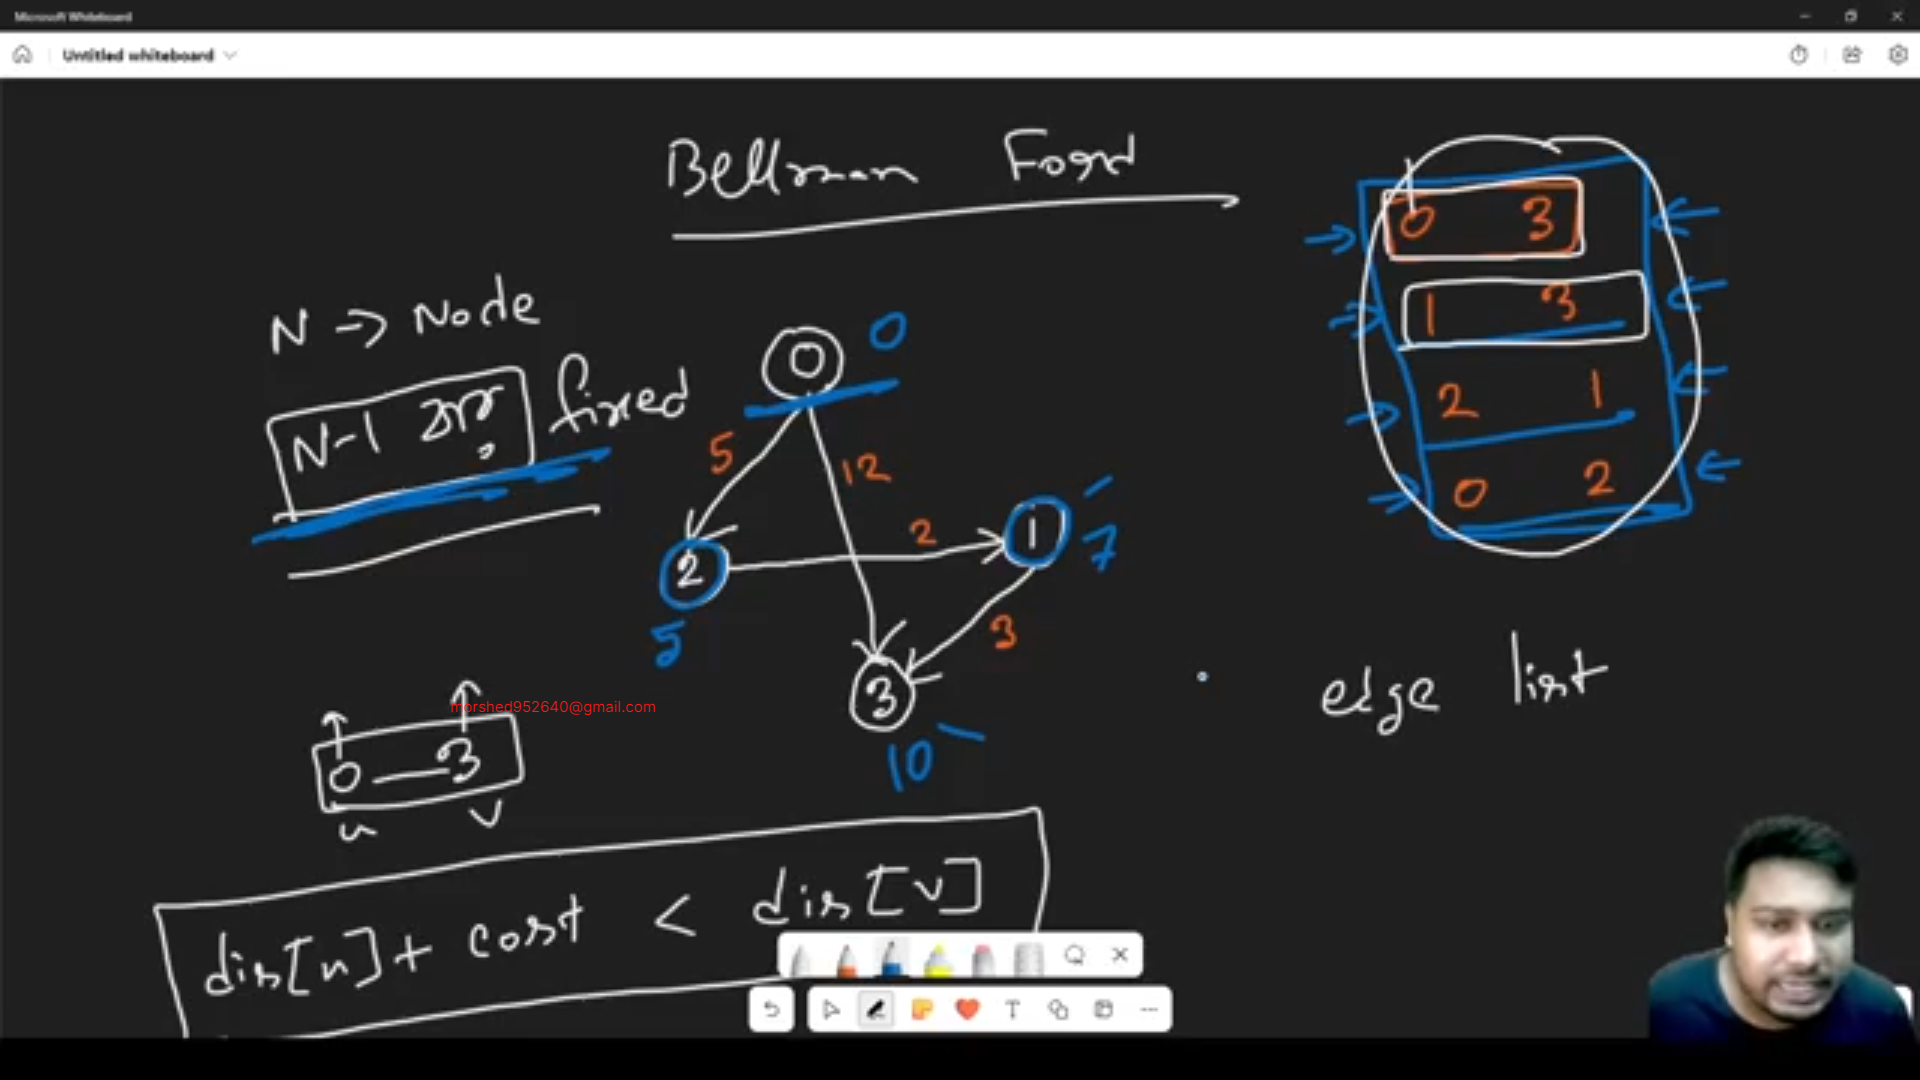 Microsoft Whiteboard
Untitled whiteboard
Bellman Ford
N -> Node
N-1 বার fixed
0 0
5
12
2
1
7
2
5
3
3
10
0 3
1 3
2 1
0 2
edge list
morshed952640@gmail.com
0 — 3
u v
dis[u] + cost < dis[v]
T